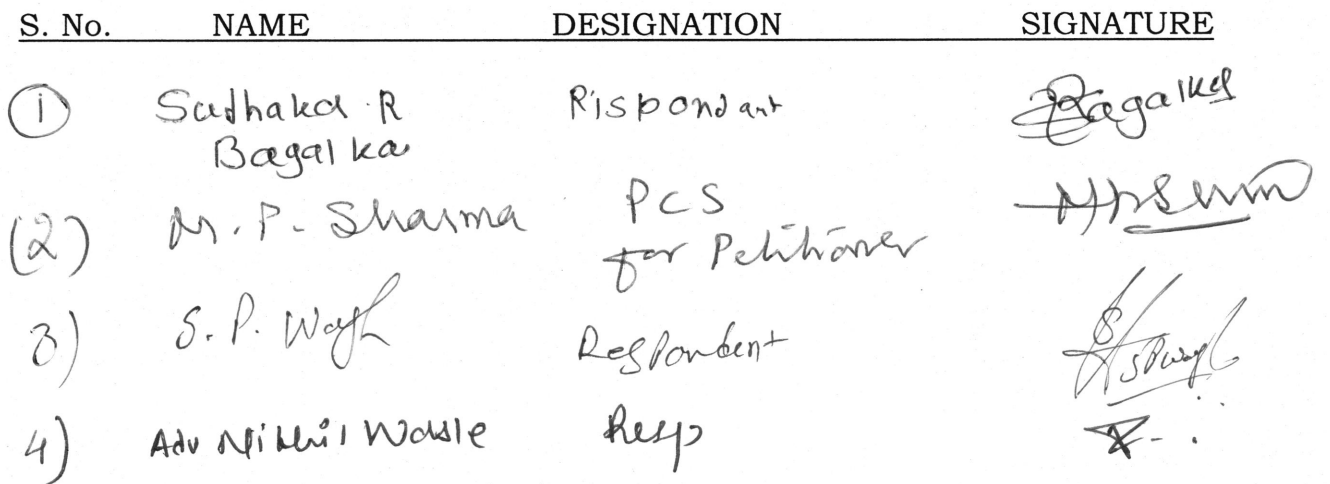 S. No. NAME DESIGNATION SIGNATURE
1 Sudhakar R Rispondant Bagalkar
Bagalka
(2) M. P. Sharma PCS
for Petitioner
3) S. P. Wagh Respondent SPWagh
4) Adv Nikhil Wable Resp